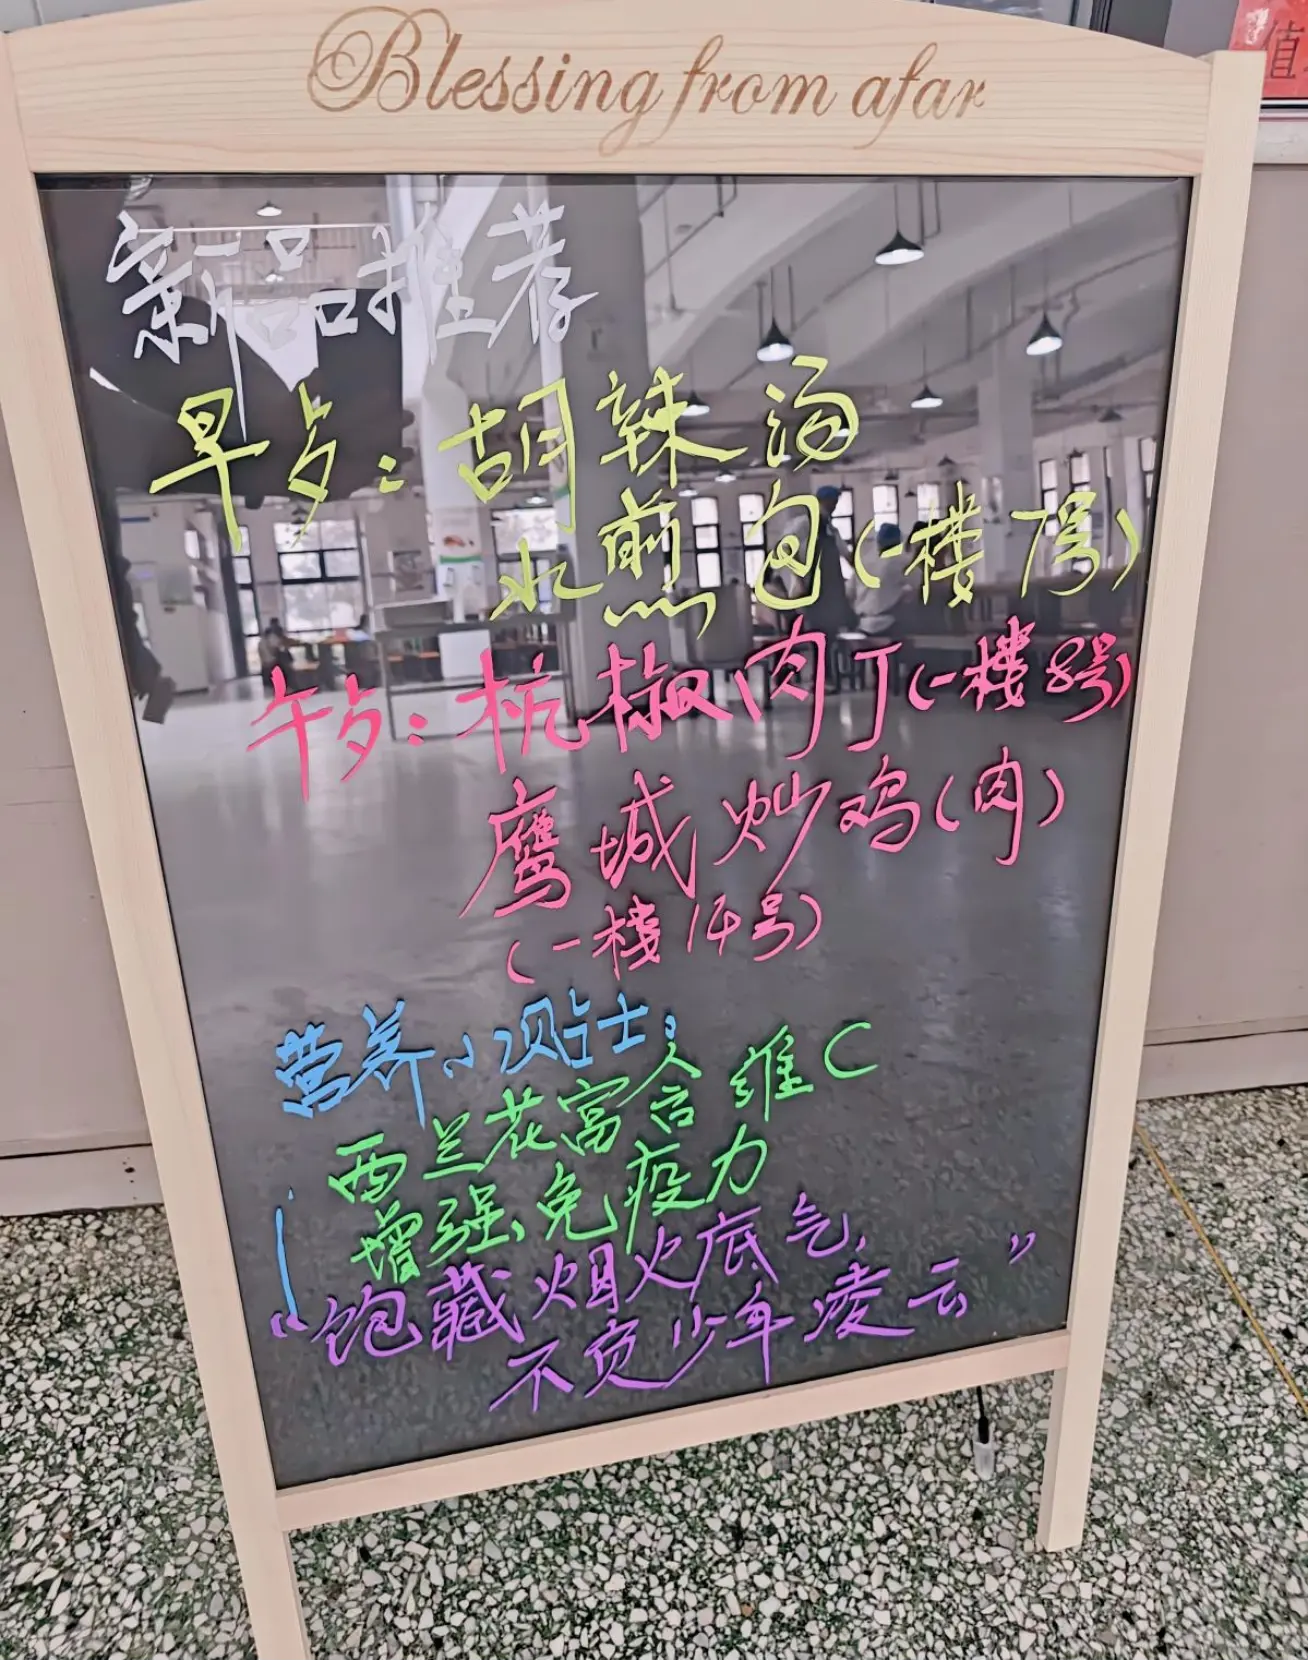 Blessing from afar
值
新品推荐
早歺:胡辣汤
水煎包(一楼7号)
午歺:杭椒肉丁(一楼8号)
鹰城炒鸡(肉)
(一楼14号)
营养小贴士:
西兰花富含维C
增强免疫力
“饱藏烟火底气,
不负少年凌云”